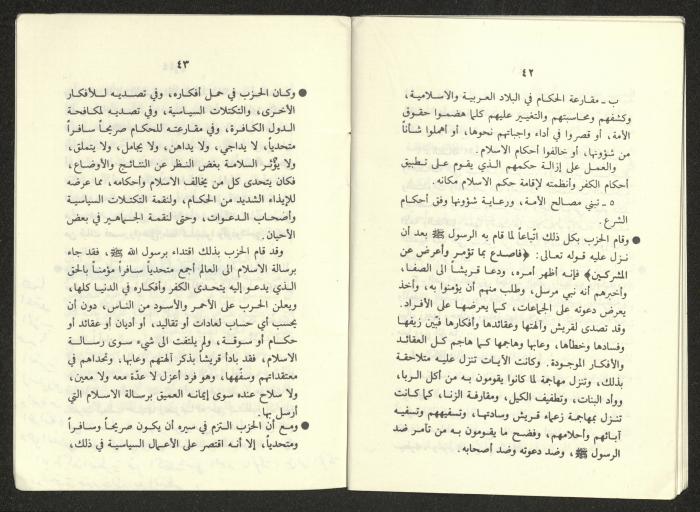 ٤٢
ب - مقارعة الحكام في البلاد العربية والاسلامية،
وكشفهم ومحاسبتهم والتغيير عليهم كلما هضموا حقوق
الأمة، أو قصروا في أداء واجباتهم نحوها، أو أهملوا شأناً
من شؤونها، أو خالفوا أحكام الاسلام.
والعمل على إزالة حكمهم الذي يقوم على تطبيق
أحكام الكفر وأنظمته لإقامة حكم الاسلام مكانه.
٥ - تبني مصالح الأمة، ورعاية شؤونها وفق أحكام
الشرع.
● وقام الحزب بكل ذلك اتّباعاً لما قام به الرسول ﷺ بعد أن
نزل عليه قوله تعالى: ﴿فاصدع بما تؤمر وأعرض عن
المشركين﴾ فإنه أظهر أمره، ودعا قريشاً الى الصفا،
وأخبرهم أنه نبي مرسل، وطلب منهم أن يؤمنوا به، وأخذ
يعرض دعوته على الجماعات، كما يعرضها على الأفراد.
وقد تصدى لقريش وآلهتها وعقائدها وأفكارها فبيّن زيفها
وفسادها وخطأها، وعابها وهاجمها كما هاجم كل العقائد
والأفكار الموجودة. وكانت الآيات تنزل عليه متلاحقة
بذلك، وتنزل مهاجمة لما كانوا يقومون به من أكل الربا،
ووأد البنات، وتطفيف الكيل، ومقارفة الزنا، كما كانت
تنزل بمهاجمة زعماء قريش وسادتها، وتسفيههم وتسفيه
آبائهم وأحلامهم، وفضح ما يقومون به من تآمر ضد
الرسول ﷺ، وضد دعوته وضد أصحابه.
٤٣
● وكان الحزب في حمل أفكاره، وفي تصديه للأفكار
الأخرى، والتكتلات السياسية، وفي تصديه لمكافحة
الدول الكافرة، وفي مقارعته للحكام صريحاً سافراً
متحدياً، لا يداجي، ولا يداهن، ولا يجامل، ولا يتملق،
ولا يؤثر السلامة بغض النظر عن النتائج والأوضاع،
فكان يتحدى كل من يخالف الاسلام وأحكامه، مما عرضه
للإيذاء الشديد من الحكام، ولنقمة التكتلات السياسية
وأصحاب الدعوات، وحتى لنقمة الجماهير في بعض
الأحيان.
وقد قام الحزب بذلك اقتداء برسول الله ﷺ، فقد جاء
برسالة الاسلام الى العالم أجمع متحدياً سافراً مؤمناً بالحق
الذي يدعو إليه يتحدى الكفر وأفكاره في الدنيا كلها،
ويعلن الحرب على الأحمر والأسود من الناس، دون أن
يحسب أي حساب لعادات أو تقاليد، أو أديان أو عقائد أو
حكام أو سوقة، ولم يلتفت الى شيء سوى رسالة
الاسلام، فقد بادأ قريشاً بذكر آلهتهم وعابها، وتحداهم في
معتقداتهم وسفّهها، وهو فرد أعزل لا عدّة معه ولا معين،
ولا سلاح عنده سوى إيمانه العميق برسالة الاسلام التي
أرسل بها.
● ومع أن الحزب التزم في سيره أن يكون صريحاً وسافراً
ومتحدياً، إلا أنه اقتصر على الأعمال السياسية في ذلك،